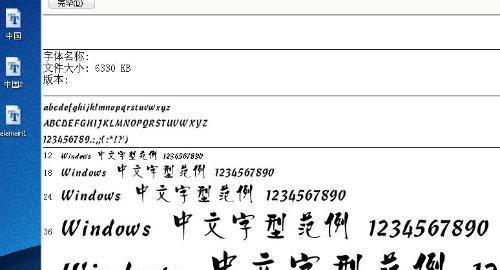 完毕(D)
中国
中国2
alamain1
字体名称:
文件大小: 6330 KB
版本:
abcdefghijklmnopqrstuvwxyz
ABCDEFGHIJKLMNOPQRSTUVWXYZ
123456789.:,;(:*!?')
12 Windows 中文字型范例 1234567890
18 Windows 中文字型范例 1234567890
24 Windows 中文字型范例 1234567890
36 Windows 中文字型范例 1234567890